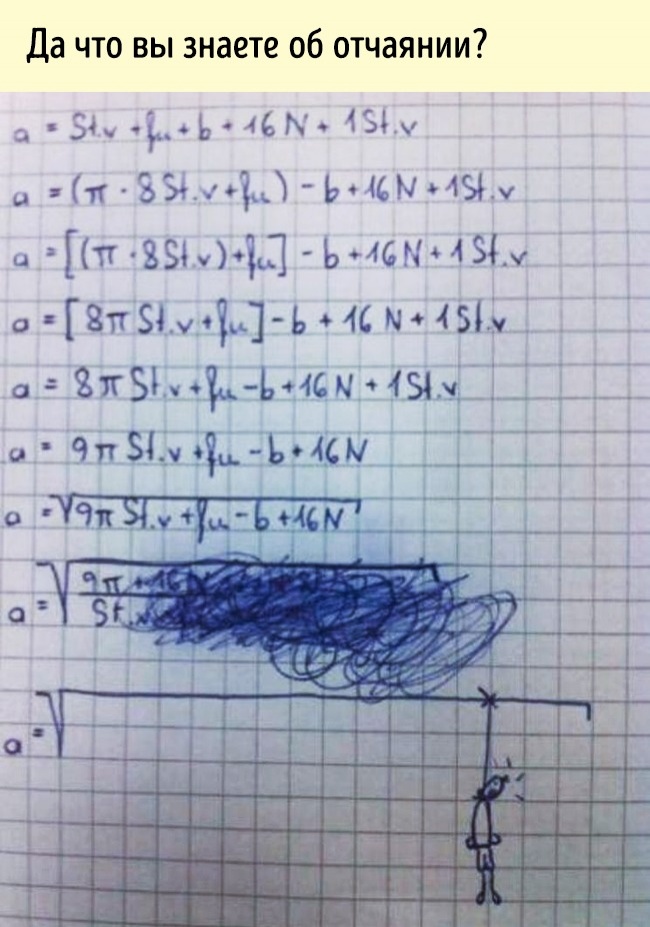 Да что вы знаете об отчаянии?
a = St.v + fu + b + 16 N + 1 St.v
a = (π · 8 St.v + fu) - b + 16 N + 1 St.v
a = [(π · 8 St.v) + fu] - b + 16 N + 1 St.v
a = [8π St.v + fu] - b + 16 N + 1 St.v
a = 8π St.v + fu - b + 16 N + 1 St.v
a = 9π St.v + fu - b + 16 N
a = √9π St.v + fu - b + 16 N
a = √9π + 16
St.
a = √